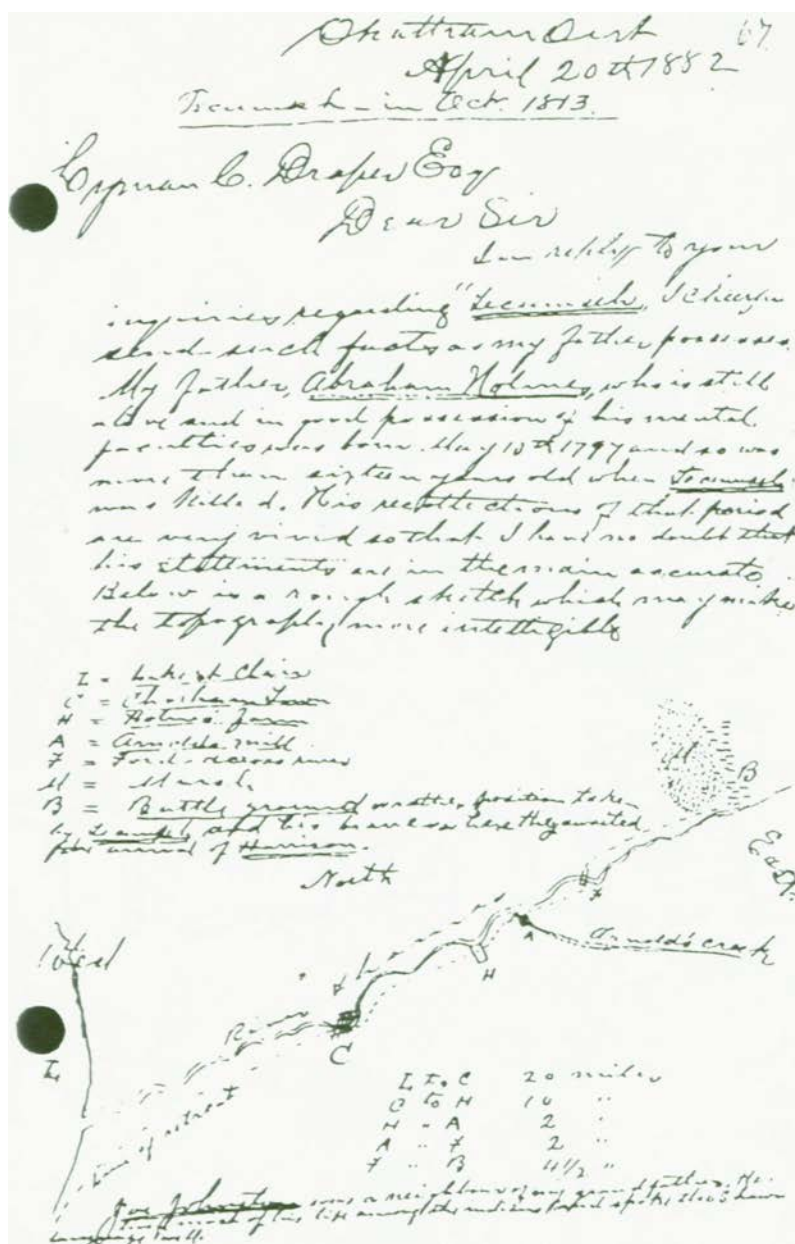 Chatham Ont 67
April 20th 1882
Tecumseh - in Oct. 1813.
Lyman C. Draper Esq
Dear Sir
In reply to your
inquiries regarding "Tecumseh, I
send such facts as my father possesses.
My father, Abraham Holmes, who is still
alive and in good possession of his mental
faculties was born May 10th 1797 and so was
more than sixteen years old when Tecumseh
was killed. His recollections of that period
are very vivid so that I have no doubt that
his statements are in the main accurate.
Below is a rough sketch which may make
the topography more intelligible
L = Lake St Clair
C = Chatham Town
H = Holmes farm
A = Arnolds mill
F = Ford across river
M = Marsh
B = Battle ground or rather position taken
by Tecumseh and his braves where they awaited
the arrival of Harrison.
North
M B
East
West
F
A Arnold's creek
H
River Thames
C
L
Line of retreat
L to C 20 miles
C to H 10 "
H " A 2 "
A " F 2 "
F " B 4 1/2 "
Joe Johnston was a neighbour of my grandfather. He
lived most of his life among the indians and spoke the
language well.